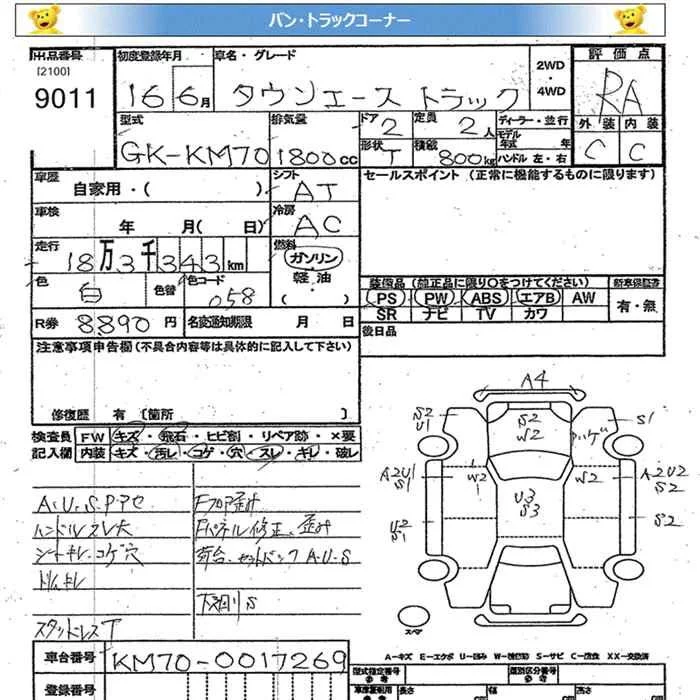 バン・トラックコーナー
出品番号 初度登録年月 車名・グレード 2WD ・ 4WD 評価点
[2100]
9011 16 6月 タウンエース トラック RA
型式 排気量 ドア 定員 ディーラー・並行 外装 内装
GK-KM70 1800cc 2 2人 モデル年式 年 C C
形状 T 積載 800kg ハンドル 左・右
車歴 シフト セールスポイント (正常に機能するものに限ります)
自家用・( ) AT
車検 冷房
年 月( 日) AC
走行 燃料
18万3千343km ガソリン・軽油・( )
色 色替 色コード 装備品 (部正品に限り○をつけてください) 新車保証書
白 058 PS PW ABS エアB AW 有・無
SR ナビ TV カワ
R券 8890円 名変通知期限 月 日 後日品
注意事項申告欄 (不具合内容等は具体的に記入して下さい)
修復歴 有 〔箇所 〕
検査員 FW キズ・飛石・ヒビ割・リペア跡・×要
記入欄 内装 キズ・汚レ・コゲ・穴・スレ・キレ・破レ
A.U.S.P.アセ Fフロア歪み
ハンドルスレ大 Fパネル修正、歪み
シートキレ.コゲ穴 荷台.セットバック A.U.S
トリムキレ
下廻り S
スタッドレスT
A4
S2 U1
S2 W2
ハゲ
S1
A2U1 S1
W2
U3 S3
W2
A2U2 S2
U2 S1
S2
スペア
A-キズ E-エクボ U-凹み W-補修跡 S-サビ C-腐食 XX-交換済
車台番号 KM70-0017269
登録番号
型式指定番号 参考 類別区分番号 参考
長さ 幅 高さ